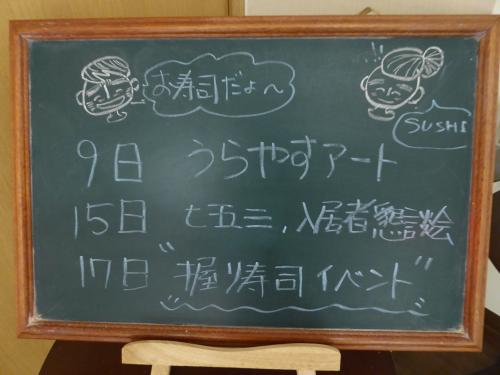 お寿司だよ〜
SUSHI
9日 うらやすアート
15日 七五三,入居者懇話会
17日 "握り寿司イベント"